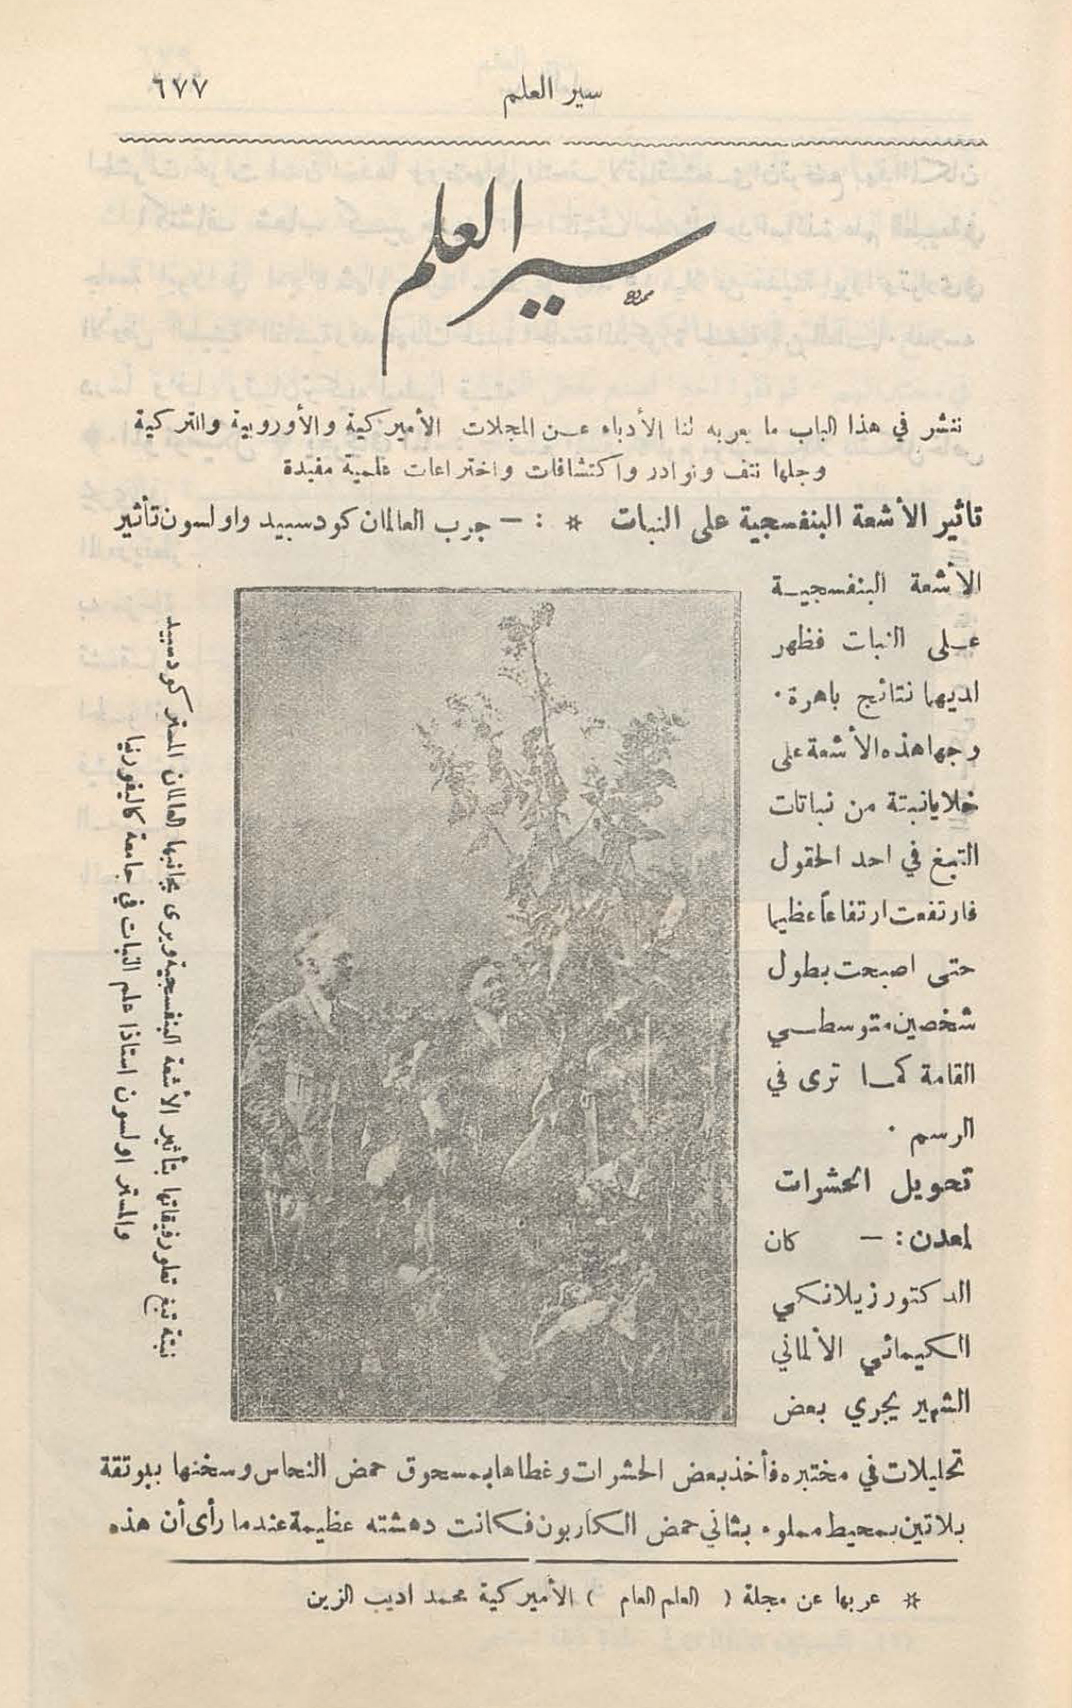 سير العلم
٦٧٧
سير العلم
ننشر في هذا الباب ما يعربه لنا الأدباء عن المجلات الأميركية والأوروبية والتركية
وجلها نتف ونوادر واكتشافات واختراعات علمية مفيدة
تاثير الأشعة البنفسجية على النبات * : — جرب العالمان كودسبيد واولسون تأثير
الأشعة البنفسجية
على النبات فظهر
لديهما نتائج باهرة.
وجها هذه الأشعة على
خلايا نبتة من نباتات
التبغ في احد الحقول
فارتفعت ارتفاعاً عظيما
حتى اصبحت بطول
شخصين متوسطي
القامة كما ترى في
الرسم .
نبتة تبغ تطور فيقاتها بتأثير الأشعة البنفسجية ويرى بجانبها العالمان المستر كودسبيد
والمستر اولسون استاذا علم النبات في جامعة كاليفورنيا
تحويل الحشرات
لمعدن : — كان
الدكتور زيلانكي
الكيمائي الألماني
الشهير يجري بعض
تحليلات في مختبره فأخذ بعض الحشرات وغطاها بمسحوق حمض النحاس وسخنها ببوتقة
بلاتين بمحيط مملوء بثاني حمض الكاربون فكانت دهشته عظيمة عندما رأى أن هذه
* عربها عن مجلة ( العلم العام ) الأميركية محمد اديب الزين